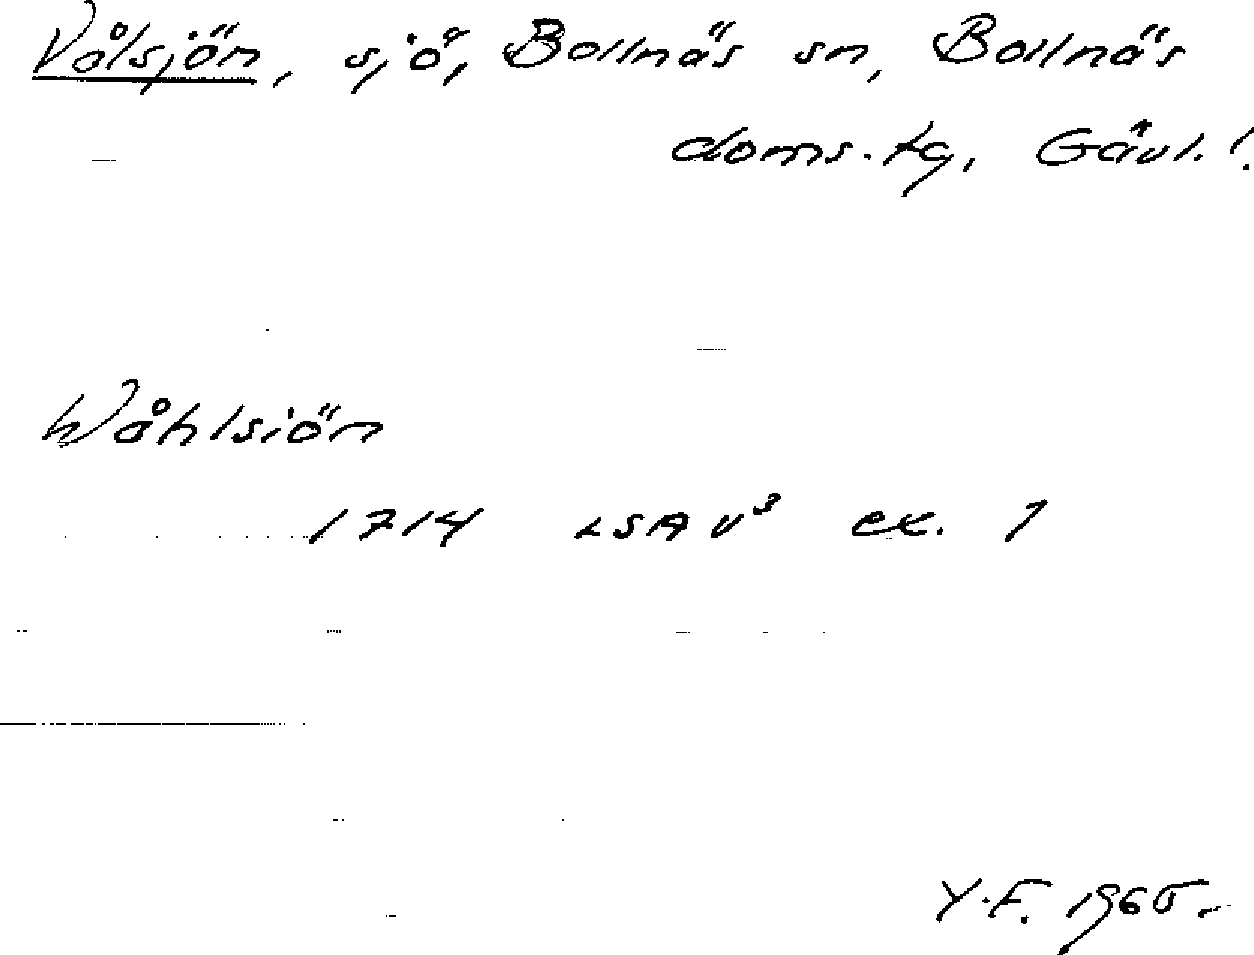 Vålsjön, sjö, Bollnäs sn, Bollnäs
doms.tg, Gävl. l.
Wåhlsiön
1714 LSA V³ ex. 1
Y.F. 1965.